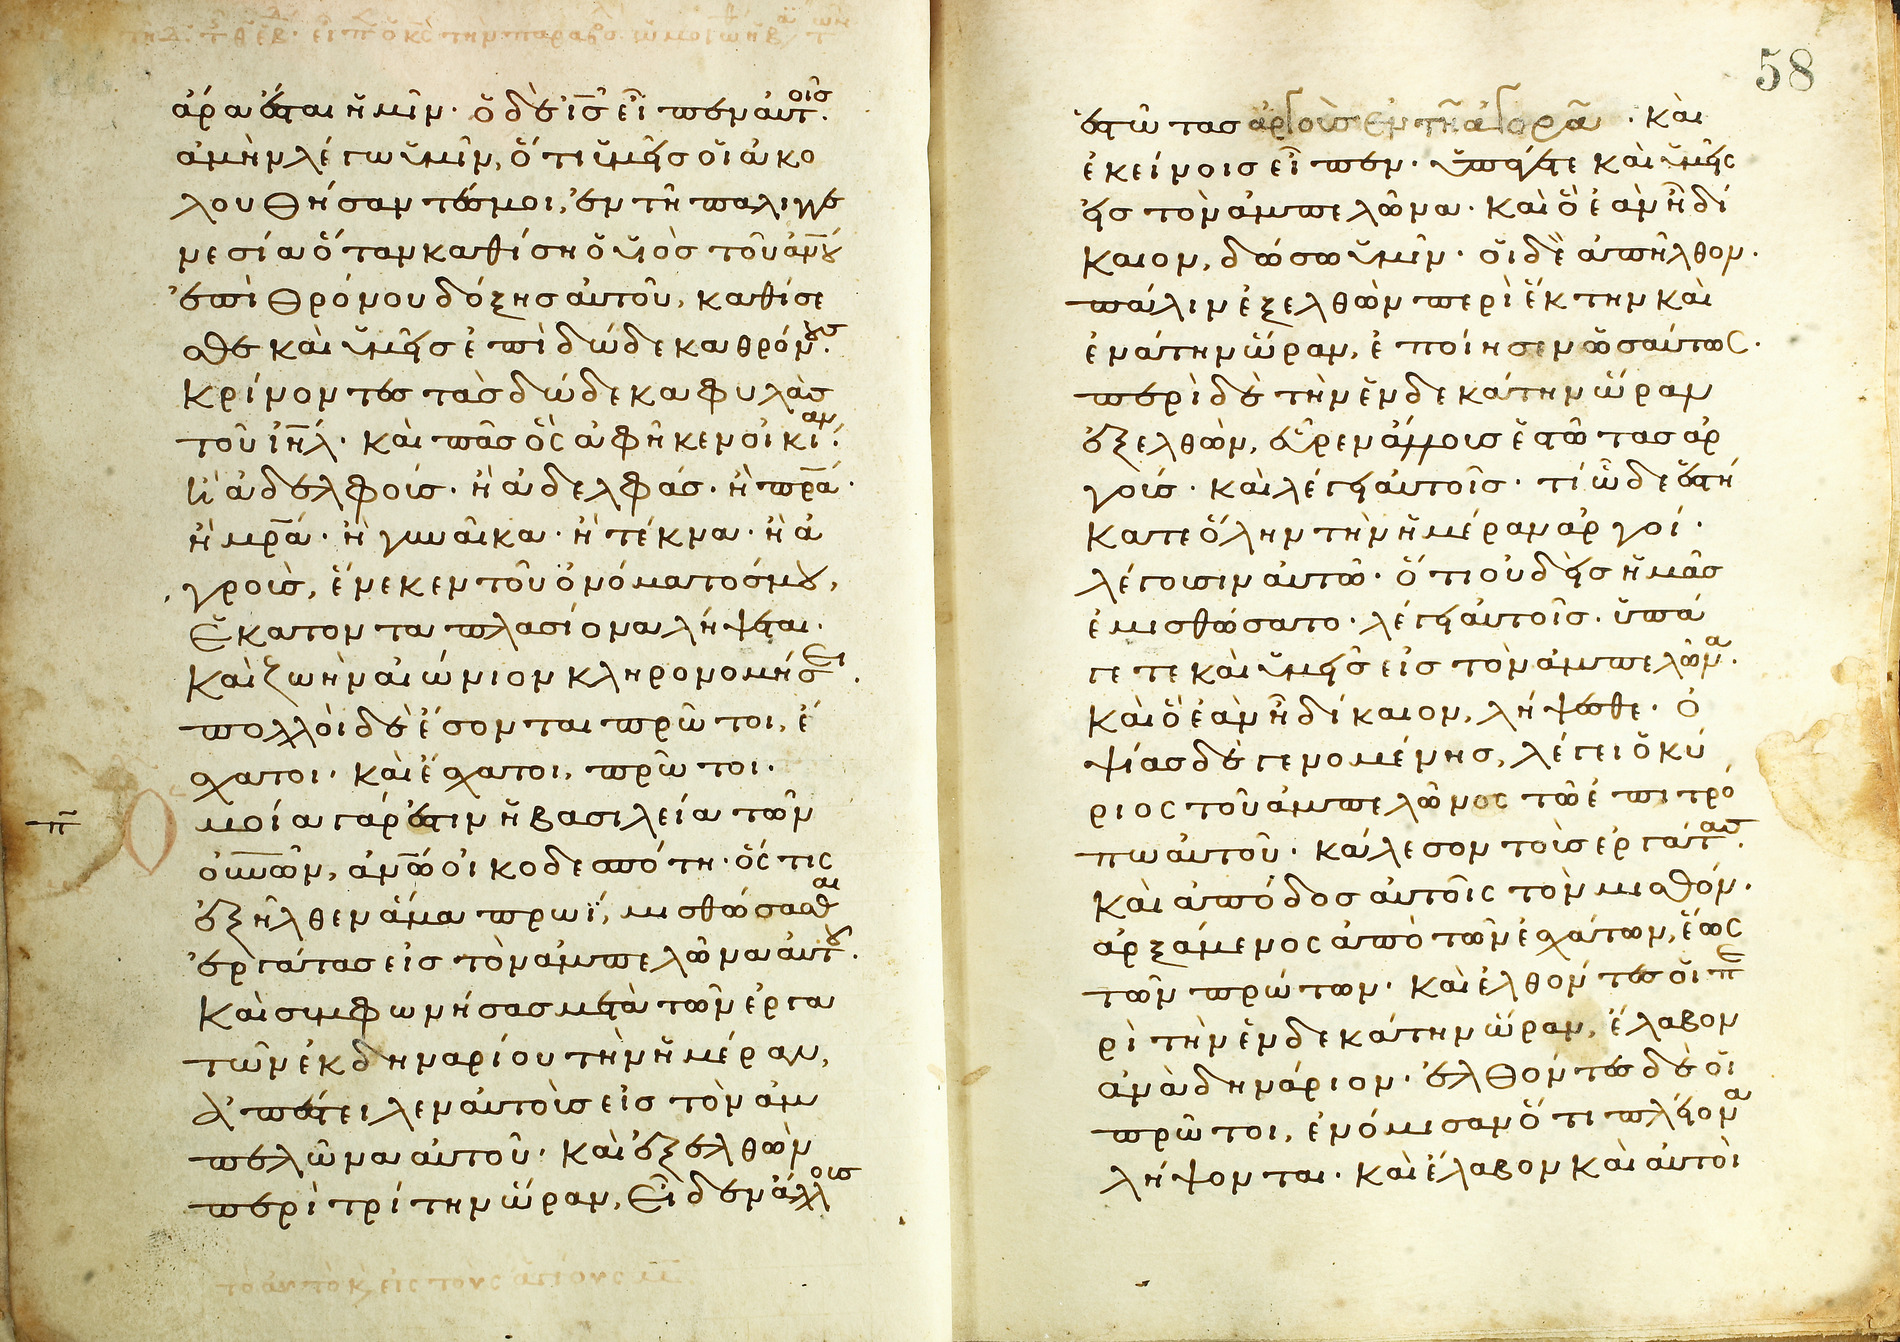 ἄρα ἔσται ἡμῖν· ὁ δὲ ις εἶπεν αὐτοῖς·
ἀμὴν λέγω ὑμῖν, ὅτι ὑμεῖς οἱ ἀκο
λουθήσαντές μοι, ἐν τῆ παλιγγε
νεσία ὅταν καθίση ὁ υἱὸς τοῦ ανου
ἐπὶ θρόνου δόξης αὐτοῦ, καθίσε
σθε καὶ ὑμεῖς ἐπὶ δώδεκα θρόνους·
κρίνοντες τὰς δώδεκα φυλὰς
τοῦ ιηλ· καὶ πᾶς ὃς ἀφῆκεν οἰκίαν·
ἢ ἀδελφούς· ἢ ἀδελφάς· ἢ πρα·
ἢ μρα· ἢ γυναῖκα· ἢ τέκνα· ἢ ἀ
γροὺς, ἕνεκεν τοῦ ὀνόματός μου,
ἑκατονταπλασίονα λήψεται·
καὶ ζωὴν αἰώνιον κληρονομήσει·
πολλοὶ δὲ ἔσονται πρῶτοι, ἔ
σχατοι· καὶ ἔσχατοι, πρῶτοι·
Ὁμοία γάρ ἐστιν ἡ βασιλεία τῶν
οὐνῶν, ανω οἰκοδεσπότη· ὅς τις
ἐξῆλθεν ἅμα πρωῒ, μισθώσασθαι
ἐργάτας εἰς τὸν ἀμπελῶνα αὐτοῦ·
καὶ συμφωνήσας μετὰ τῶν ἐργα
τῶν ἐκ δηναρίου τὴν ἡμέραν,
ἀπέστειλεν αὐτοὺς εἰς τὸν ἀμ
πελῶνα αὐτοῦ· καὶ ἐξελθὼν
περὶ τρίτην ὥραν, εἶδεν ἄλλους
58
ἑστῶτας ἀργοὺς ἐν τῆ ἀγορᾶ· καὶ
ἐκείνοις εἶπεν· ὑπάγετε καὶ ὑμεῖς
εἰς τὸν ἀμπελῶνα· καὶ ὃ ἐὰν ἦ δί
καιον, δώσω ὑμῖν· οἱ δὲ ἀπῆλθον·
πάλιν ἐξελθὼν περὶ ἕκτην καὶ
ἐνάτην ὥραν, ἐποίησεν ὡσαύτως·
περὶ δὲ τὴν ἑνδεκάτην ὥραν
ἐξελθὼν, εὗρεν ἄλλους ἑστῶτας ἀρ
γούς· καὶ λέγει αὐτοῖς· τί ὧδε ἑστή
κατε ὅλην τὴν ἡμέραν ἀργοί·
λέγουσιν αὐτῶ· ὅτι οὐδεὶς ἡμᾶς
ἐμισθώσατο· λέγει αὐτοῖς· ὑπά
γετε καὶ ὑμεῖς εἰς τὸν ἀμπελῶνα·
καὶ ὃ ἐὰν ἦ δίκαιον, λήψεσθε· ὀ
ψίας δὲ γενομένης, λέγει ὁ κύ
ριος τοῦ ἀμπελῶνος τῶ ἐπιτρό
πω αὐτοῦ· κάλεσον τοὺς ἐργάτας·
καὶ ἀπόδος αὐτοῖς τὸν μισθόν·
ἀρξάμενος ἀπὸ τῶν ἐσχάτων, ἕως
τῶν πρώτων· καὶ ἐλθόντες οἱ πε
ρὶ τὴν ἑνδεκάτην ὥραν, ἔλαβον
ἀνὰ δηνάριον· ἐλθόντες δὲ οἱ
πρῶτοι, ἐνόμισαν ὅτι πλείονα
λήψονται· καὶ ἔλαβον καὶ αὐτοὶ